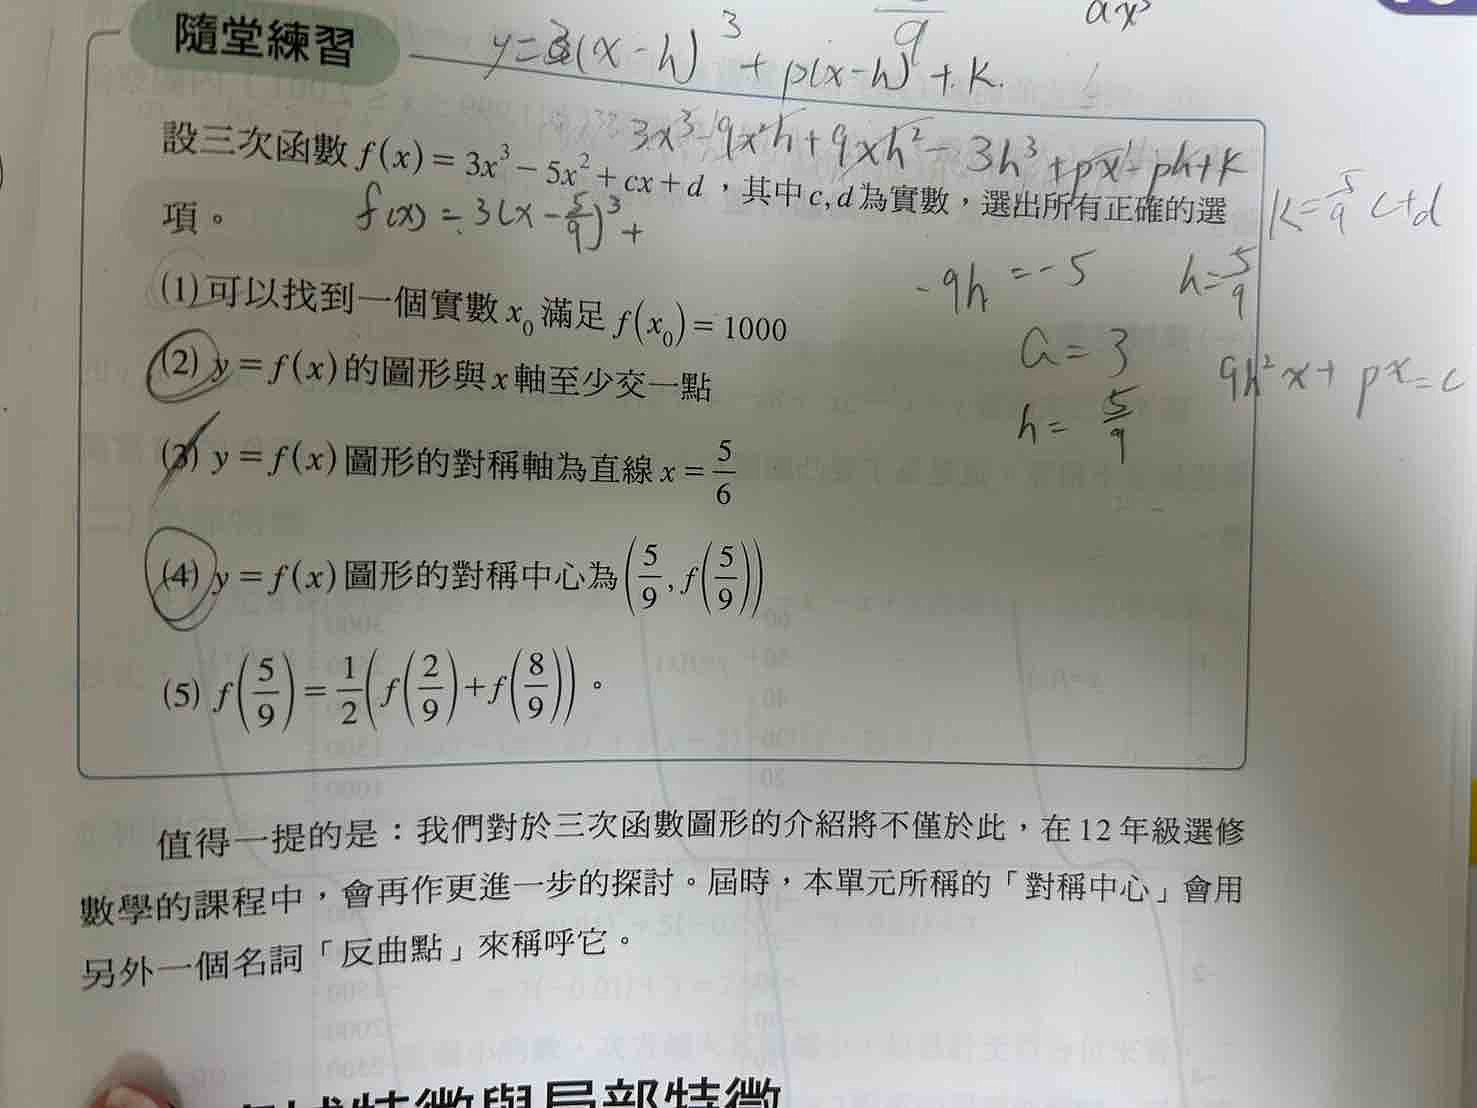 隨堂練習
y=3(x-h)³+p(x-h)+k.
9
ax³
3x³-9x²h+9xh²-3h³+px-ph+k
設三次函數 f(x)=3x³-5x²+cx+d,其中 c,d 為實數,選出所有正確的選
項。
f(x)=3(x-5/9)³+
k=5/9 c+d
-9h=-5
h=5/9
(1) 可以找到一個實數 x₀ 滿足 f(x₀)=1000
a=3
(2) y=f(x) 的圖形與 x 軸至少交一點
9h²x+px=c
h=5/9
(3) y=f(x) 圖形的對稱軸為直線 x=5/6
(4) y=f(x) 圖形的對稱中心為 (5/9, f(5/9))
(5) f(5/9)=1/2(f(2/9)+f(8/9))。
值得一提的是:我們對於三次函數圖形的介紹將不僅於此,在 12 年級選修
數學的課程中,會再作更進一步的探討。屆時,本單元所稱的「對稱中心」會用
另外一個名詞「反曲點」來稱呼它。
特徵與局部特徵